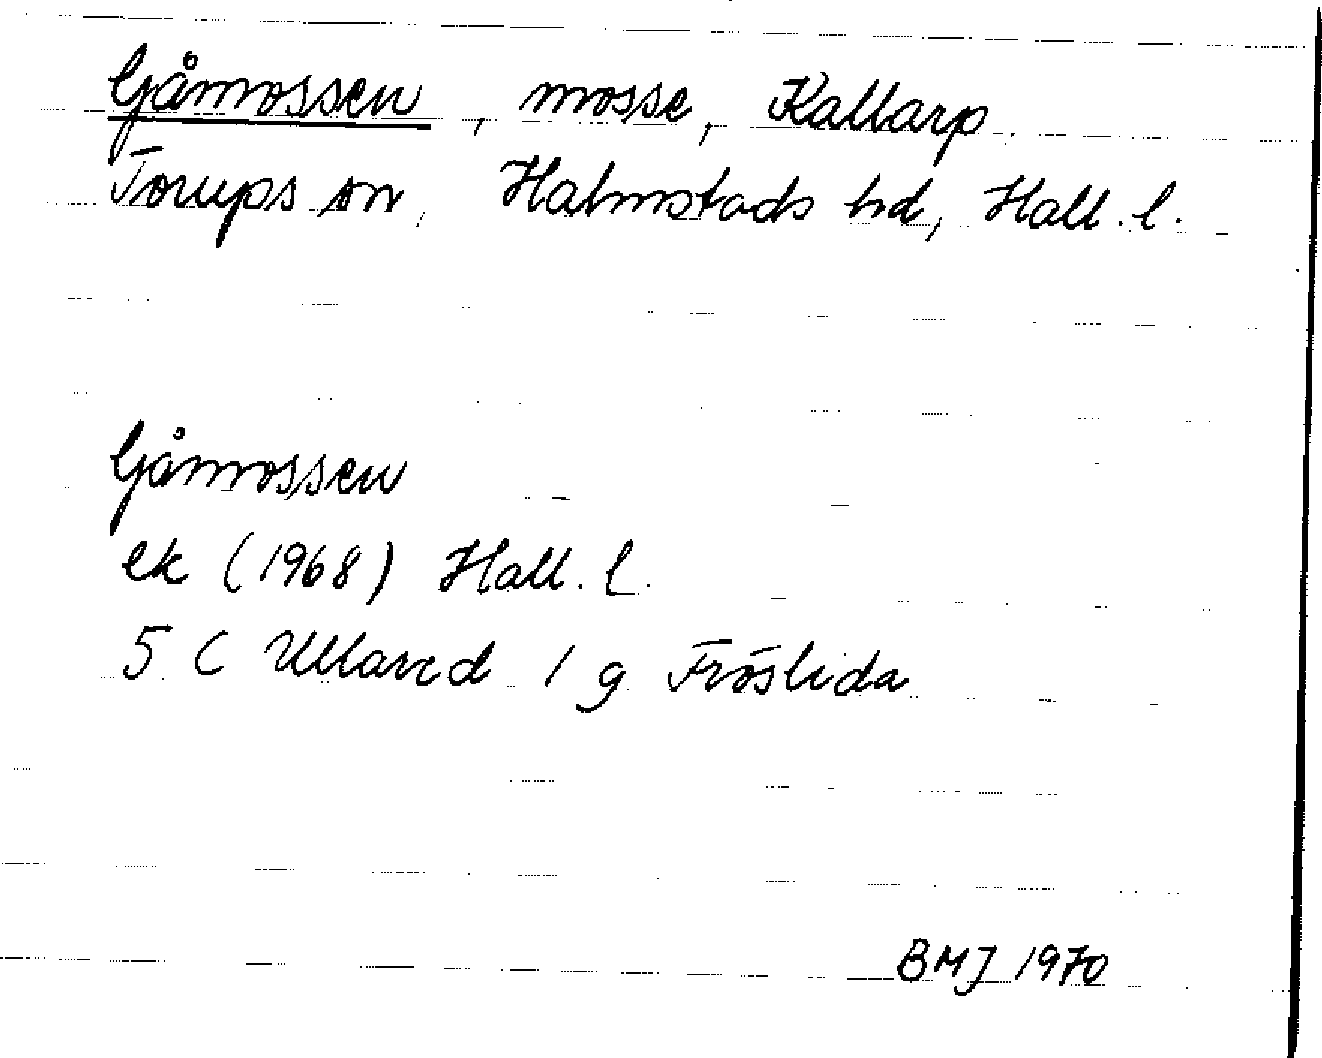 Gåmossen, mosse, Kallarp
Torups sn, Halmstads hd, Hall. l.
Gåmossen
ek (1968) Hall. l.
5 C Ullared 1 g Fröslida
BMJ 1970